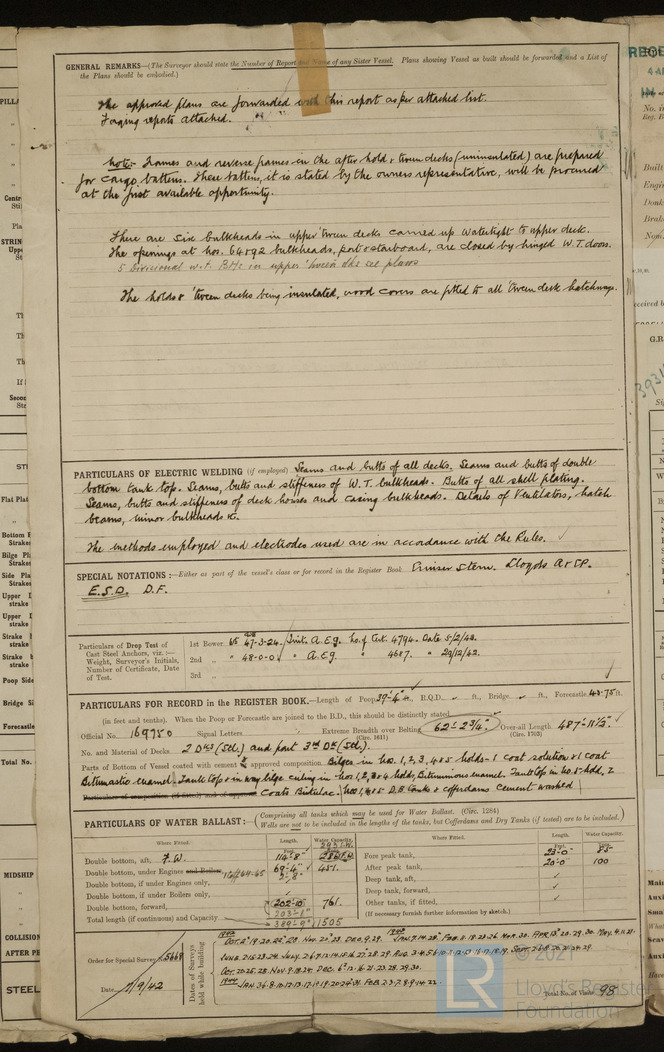 GENERAL REMARKS—(The Surveyor should state the Number of Report and Name of any Sister Vessel. Plans showing Vessel as built should be forwarded and a List of
the Plans should be embodied.)
The approved plans are forwarded with this report as per attached list.
Forging reports attached.
Note:- Frames and reverse frames in the after hold & tween decks (uninsulated) are prepared
for cargo battens. These battens, it is stated by the owners representative, will be procured
at the first available opportunity.
There are six bulkheads in upper 'tween decks carried up watertight to upper deck.
The openings at nos. 64 & 92 bulkheads, port & starboard, are closed by hinged W.T. doors.
5 Divisional w.t. BHs in upper 'tween dks see plans
The holds & 'tween decks being insulated, wood covers are fitted to all 'tween deck hatchways.
PARTICULARS OF ELECTRIC WELDING (if employed) Seams and butts of all decks. Seams and butts of double
bottom tank top. Seams, butts and stiffeners of W.T. bulkheads. Butts of all shell plating.
Seams, butts and stiffeners of deck houses and casing bulkheads. Details of Ventilators, hatch
beams, minor bulkheads &c.
The methods employed and electrodes used are in accordance with the Rules.
SPECIAL NOTATIONS:—Either as part of the vessel's class or for record in the Register Book Cruiser Stern. Lloyds A & C.P.
E.S.D. D.F.
Particulars of Drop Test of
Cast Steel Anchors, viz.:—
Weight, Surveyor's Initials,
Number of Certificate, Date
of Test.
1st Bower 47-3-24. Init. A.E.G. No. of Cert. 4794. Date 5/2/43.
2nd " " 48-0-0 " A.E.G. " 4687. " 29/12/42.
3rd "
PARTICULARS FOR RECORD in the REGISTER BOOK.—Length of Poop 39'-4" ft., B.Q.D. ft., Bridge ft., Forecastle 43.75 ft.
(in feet and tenths). When the Poop or Forecastle are joined to the B.D., this should be distinctly stated
Official No. 169750 Signal Letters Extreme Breadth over Belting 62'-2 3/4" Over-all Length 487'-11½"
(Circ. 1611) (Circ. 1703)
No. and Material of Decks 2 Dks (Stl.) and part 3rd Dk (Stl.).
Parts of Bottom of Vessel coated with cement & approved composition. Bilges in hos. 1, 2, 3, 4 & 5 holds - 1 coat solution & 1 coat
Bitumastic enamel. Tank top in way bilge ceiling in hos 1, 2, 3 & 4 holds, Bituminous enamel. Tank top in ho. 5 hold, 2
Coats Bitulac. hos 1, 4 & 5 D.B. tanks & cofferdams cement washed
PARTICULARS OF WATER BALLAST:—(Comprising all tanks which may be used for Water Ballast. (Circ. 1284)
Wells are not to be included in the lengths of the tanks, but Cofferdams and Dry Tanks (if tested) are to be included.)
Where Fitted. Length. Water Capacity.
Double bottom, aft, F.W. 114'-8"
Double bottom, under Engines and Boilers 69'-4" 451.
Double bottom, if under Engines only,
Double bottom, if under Boilers only,
Double bottom, forward, 202'-10" 761.
Total length (if continuous) and Capacity 389'-9" 1505
Where Fitted. Length. Water Capacity.
Fore peak tank, 23'-0" 83
After peak tank, 20'-0" 100
Deep tank, aft,
Deep tank, forward,
Other tanks, if fitted,
(If necessary furnish further information by sketch.)
Order for Special Survey No. 5669
Date 1/9/42
Dates of Surveys held while building
1942 Oct. 2. 19. 20. 22. 28 Nov. 20. 23 Dec. 9. 29. 1943 Jan. 7. 14. 28. Feb. 8. 19. 23. 26 Mar. 30. Apr. 13. 20. 29. 30. May. 4. 11. 21.
Oct. 20. 25. 28. Nov. 9. 18. 24. Dec. 6. 12. 16. 21. 23. 28. 29. 30.
1944 Jan. 3. 6. 8. 10. 12. 13. 17. 19. 19. 20. 24. 31. Feb. 2. 3. 7. 8. 9. 14. 22.
Total No. of Visits 98
© 2021
Lloyd's Register
Foundation
LR